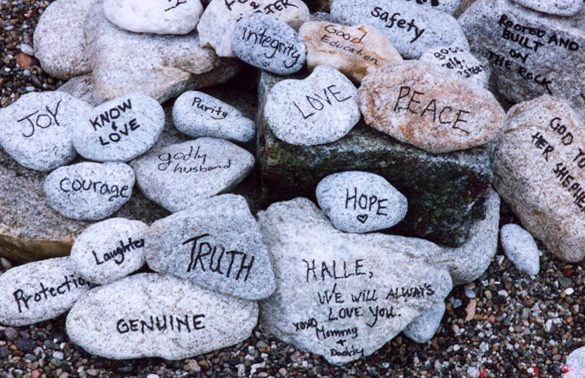 Safety
integrity
Good
Education
ROOTED AND
BUILT
ON
THE ROCK
JOY
KNOW
LOVE
Purity
LOVE
PEACE
godly
husband
courage
HOPE
Laughter
TRUTH
Protection
GENUINE
HALLE,
WE WILL ALWAYS
LOVE YOU.
xoxo
Mommy
+
Daddy